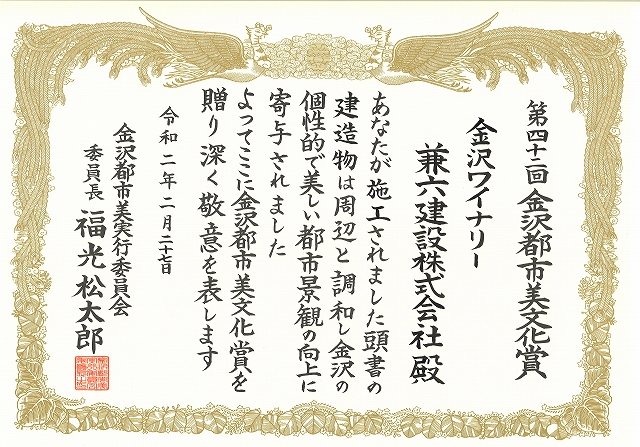 第四十二回 金沢都市美文化賞
金沢ワイナリー
兼六建設株式会社 殿
あなたが施工されました頭書の
建造物は周辺と調和し金沢の
個性的で美しい都市景観の向上に
寄与されました
よってここに金沢都市美文化賞を
贈り深く敬意を表します
令和二年二月二十七日
金沢都市美実行委員会
委員長 福光松太郎